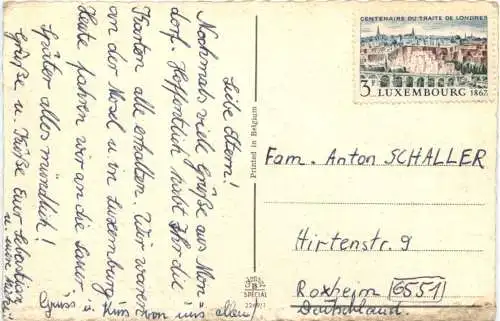 Liebe Eltern!
Nochmals viele Grüße aus Mon
dorf. Hoffentlich habt Ihr die
Karten alle erhalten. Wir waren
an der Mosel u. in Luxemburg
Heute fahren wir an die Sauer.
Später alles mündlich!
Grüße u. Küße Euer Sebastian
u.
Gruss u. Kuss von uns allen
Printed in Belgium
SPECIAL
CENTENAIRE DU TRAITE DE LONDRES
3F LUXEMBOURG 1867
Fam. Anton SCHALLER
Hirtenstr. 9
Roxheim 6551
Deutschland